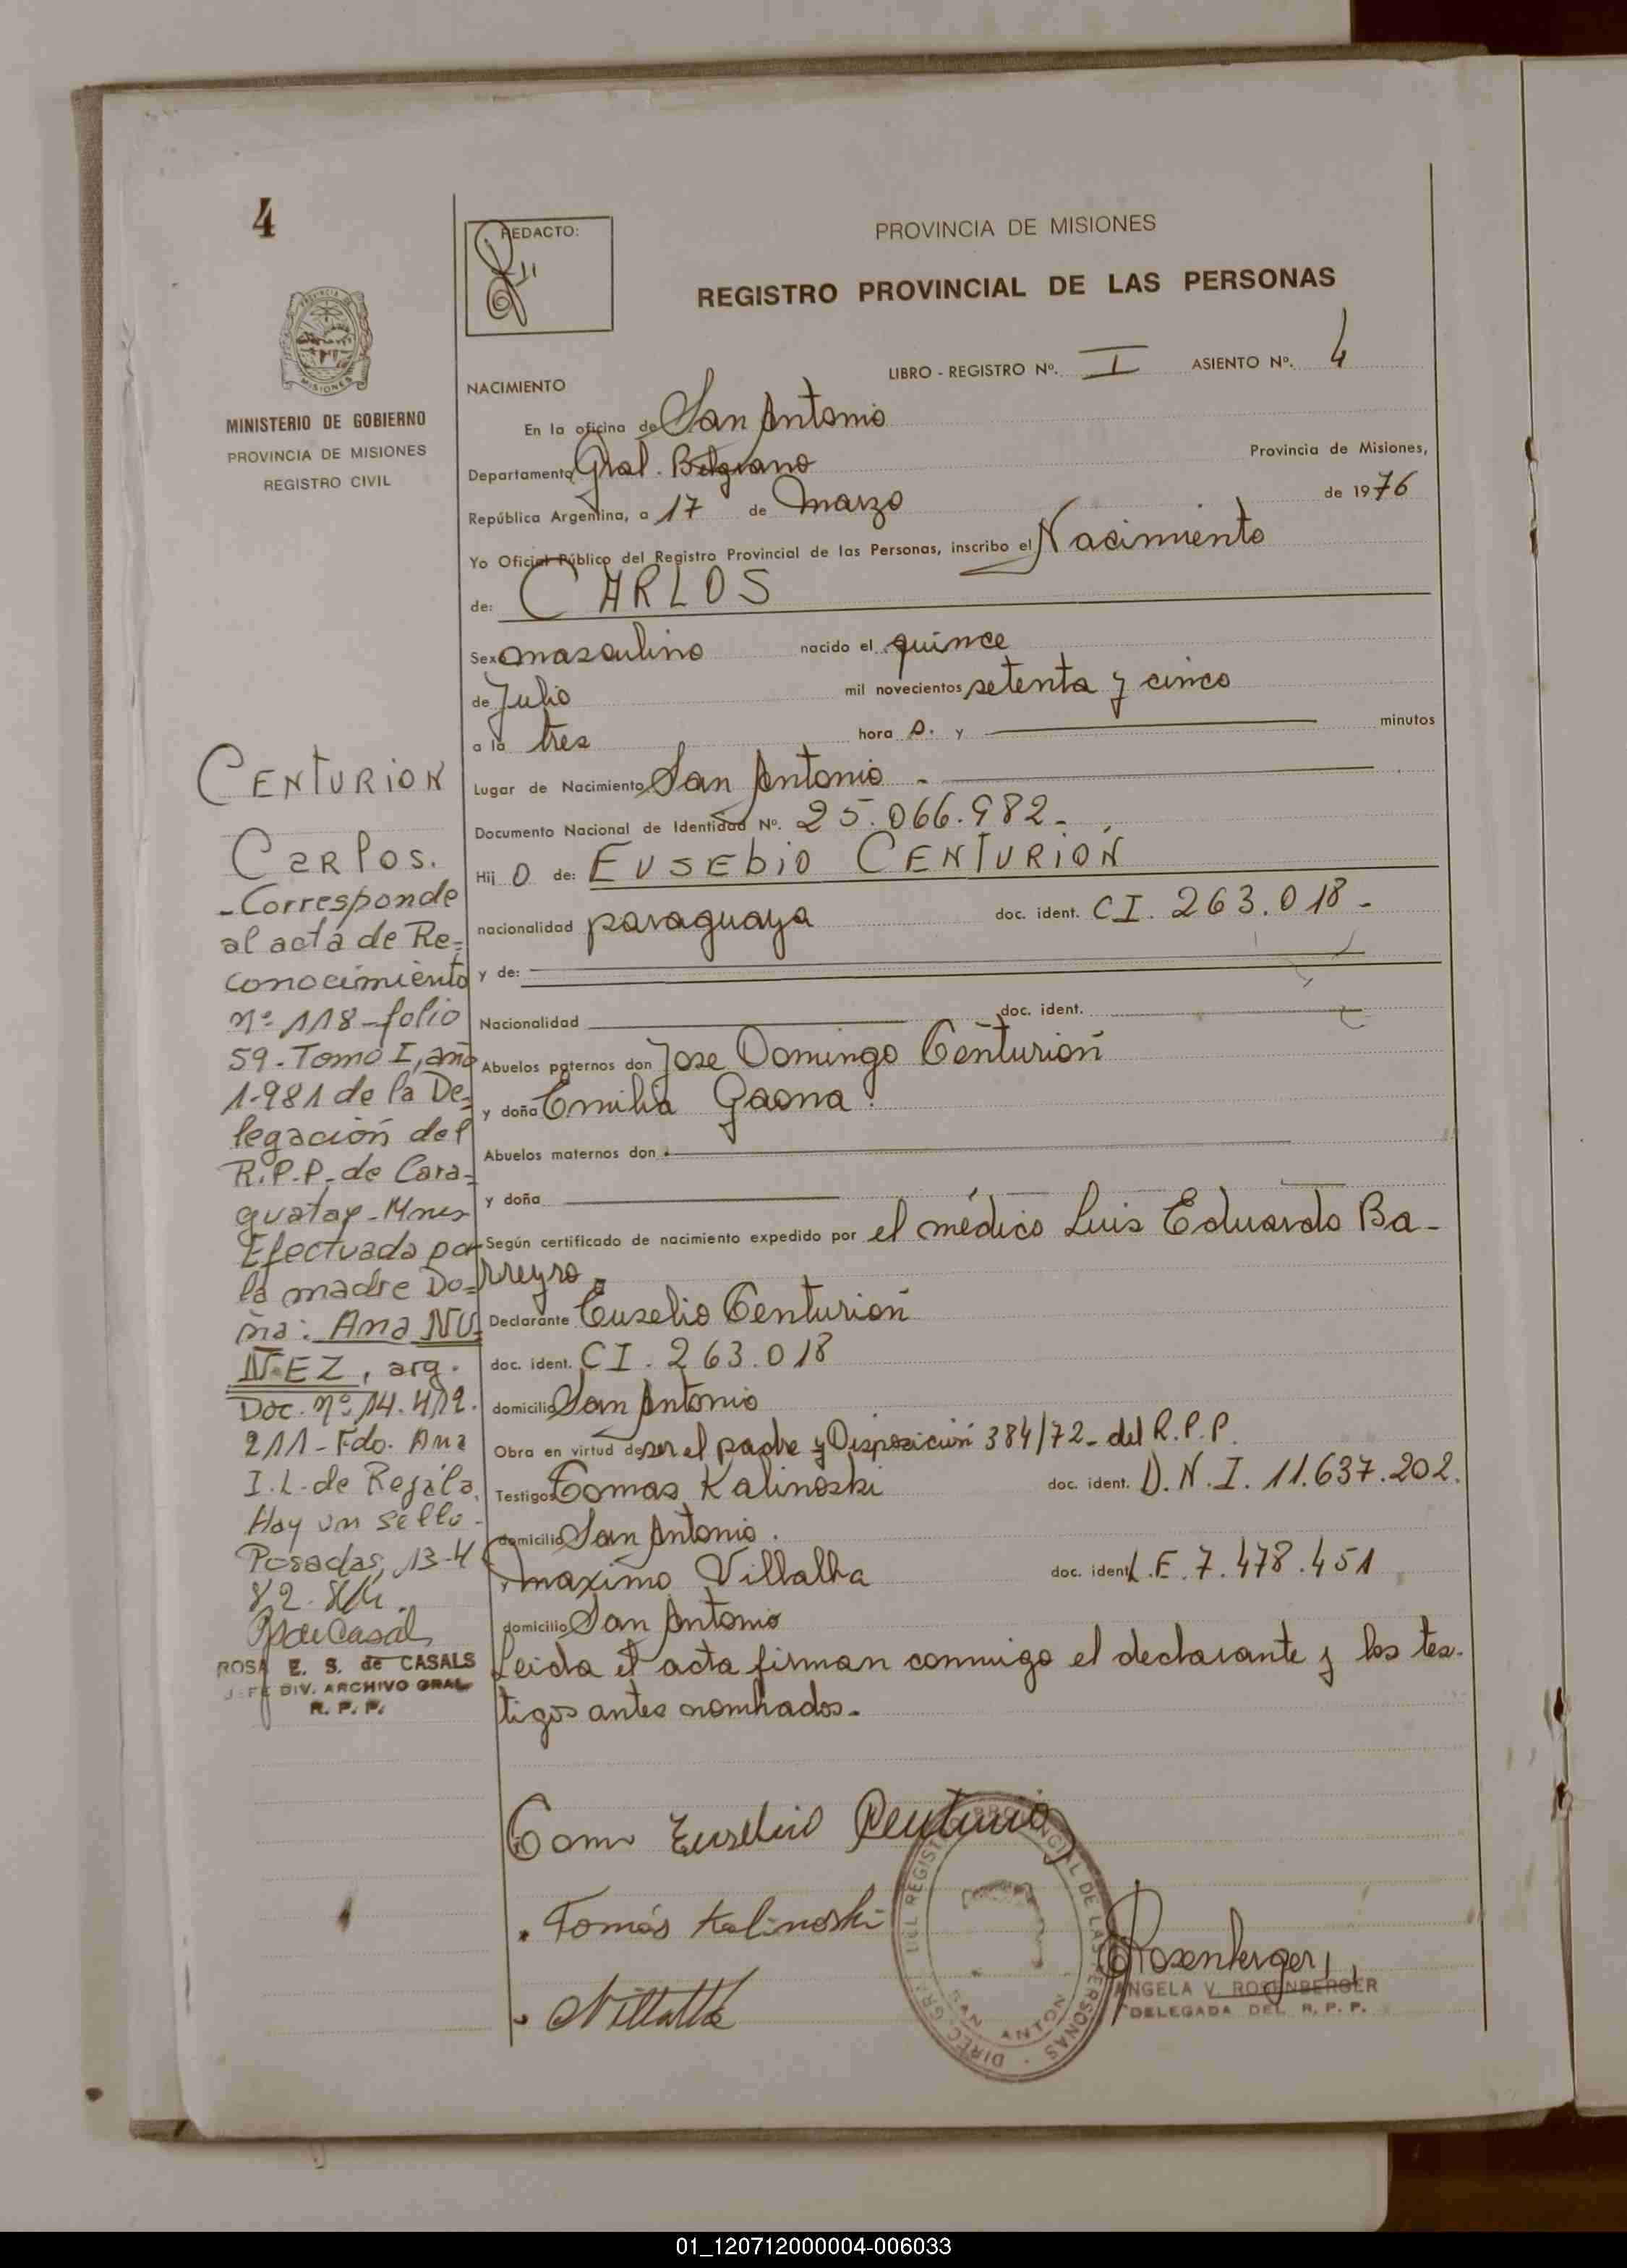 4
REDACTO:
PROVINCIA DE MISIONES
REGISTRO PROVINCIAL DE LAS PERSONAS
MINISTERIO DE GOBIERNO
PROVINCIA DE MISIONES
REGISTRO CIVIL
LIBRO - REGISTRO Nº. I ASIENTO Nº. 4
NACIMIENTO
En la oficina de San Antonio
Departamento Gral. Belgrano Provincia de Misiones,
República Argentina, a 17 de Marzo de 1976
Yo Oficial Público del Registro Provincial de las Personas, inscribo el Nacimiento
de: CARLOS
Sexo masculino nacido el quince
de Julio mil novecientos setenta y cinco
a la tres hora s. y minutos
Lugar de Nacimiento San Antonio -
Documento Nacional de Identidad Nº. 25.066.982-
Hij o de: EUSEbiO CENTURiÓN
nacionalidad paraguaya doc. ident. CI. 263.018-
y de:
Nacionalidad doc. ident.
Abuelos paternos don Jose Domingo Centurión
y doña Emilia Gaona.
Abuelos maternos don
y doña
Según certificado de nacimiento expedido por el médico Luis Eduardo Ba-
rreyro
Declarante Eusebio Centurión
doc. ident. CI. 263.018
domicilio San Antonio
Obra en virtud de ser el padre y Disposición 384/72- del R.P.P.
Testigos Tomas Kalinoski doc. ident. D.N.I. 11.637.202.
domicilio San Antonio.
Maximo Villalba doc. ident. L.E. 7.478.451
domicilio San Antonio
Leida el acta firman conmigo el declarante y los tes-
tigos antes nombrados.-
CENTURION
Carlos.
-Corresponde
al acta de Re=
conocimiento
nº 118-folio
59-Tomo I, año
1-981 de la De=
legación del
R.P.P. de Cara-
guatay-Mnes
Efectuada por
la madre Do=
ña: Ana NU=
ÑEZ, arg.
Doc. nº 14.412.
211-Fdo. Ana
I.L. de Regala.
Hay un sello-
Posadas, 13-4
82.
ROSA E. S. de CASALS
JEFE DIV. ARCHIVO GRAL
R. P. P.
Eusebio Centurio
Tomás Kalinoski
Villalba
DIREC. GRAL. DEL REGISTRO PROVINCIAL DE LAS PERSONAS
SAN ANTONIO
Rosenberger
ANGELA V. ROSENBERGER
DELEGADA DEL R. P. P.
01_120712000004-006033